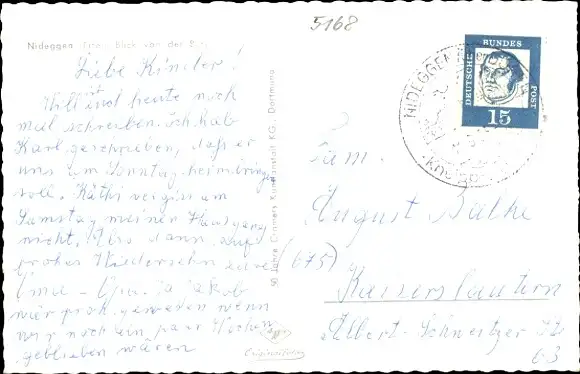 5168
Nideggen Eifel, Blick von der
Liebe Kinder!
Will und heute noch
mal schreiben. Ich hab
Karl geschrieben, daß er
uns am Sonntag heimbringen
soll. Käthi vergiß am
Samstag meinen Hausgang
nicht. Also dann auf
frohes Wiedersehn eure
Oma - Opa. ja Jakob
wär froh gewesen wenn
wir noch ein paar Wochen
geblieben wären
50 Jahre Cramers Kunstanstalt KG., Dortmund
Originalfoto
NIDEGGEN
DEUTSCHE BUNDESPOST
15
Fam.
August Bälke
(675)
Kaiserslautern
Albert-Schweitzer Str
63